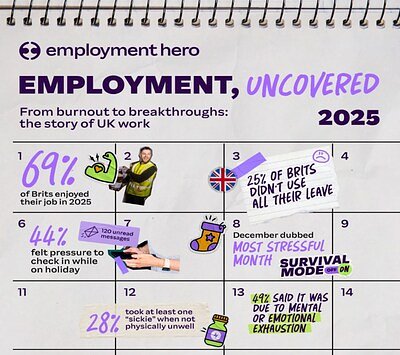 employment hero
EMPLOYMENT, UNCOVERED
2025
From burnout to breakthroughs:
the story of UK work
1
69%
of Brits enjoyed
their job in 2025
2
3
25% OF BRITS
DIDN'T USE
ALL THEIR LEAVE
4
6
44%
felt pressure to
check in while
on holiday
7
120 unread
messages
8
December dubbed
MOST STRESSFUL
MONTH
SURVIVAL
MODE OFF ON
9
11
12
28%
took at least one
"sickie" when not
physically unwell
13
49% SAID IT WAS
DUE TO MENTAL
OR EMOTIONAL
EXHAUSTION
14